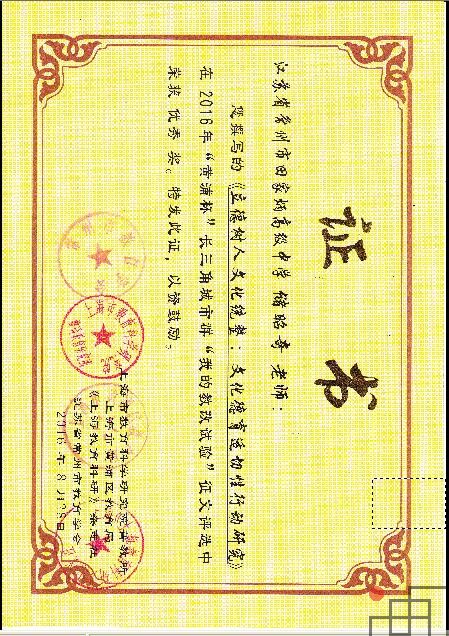 证书
江苏省常州市田家炳高级中学 储昭奇 老师:
您撰写的《立德树人文化统整:文化德育适切性行动研究》
在2016年“黄浦杯”长三角城市群“我的教改试验”征文评选中
荣获 优秀 奖。特发此证,以资鼓励。
上海市教育科学研究院普教所
上海市黄浦区教育局
《上海教育科研》杂志社
江苏省常州市教育学会
2016年8月28日